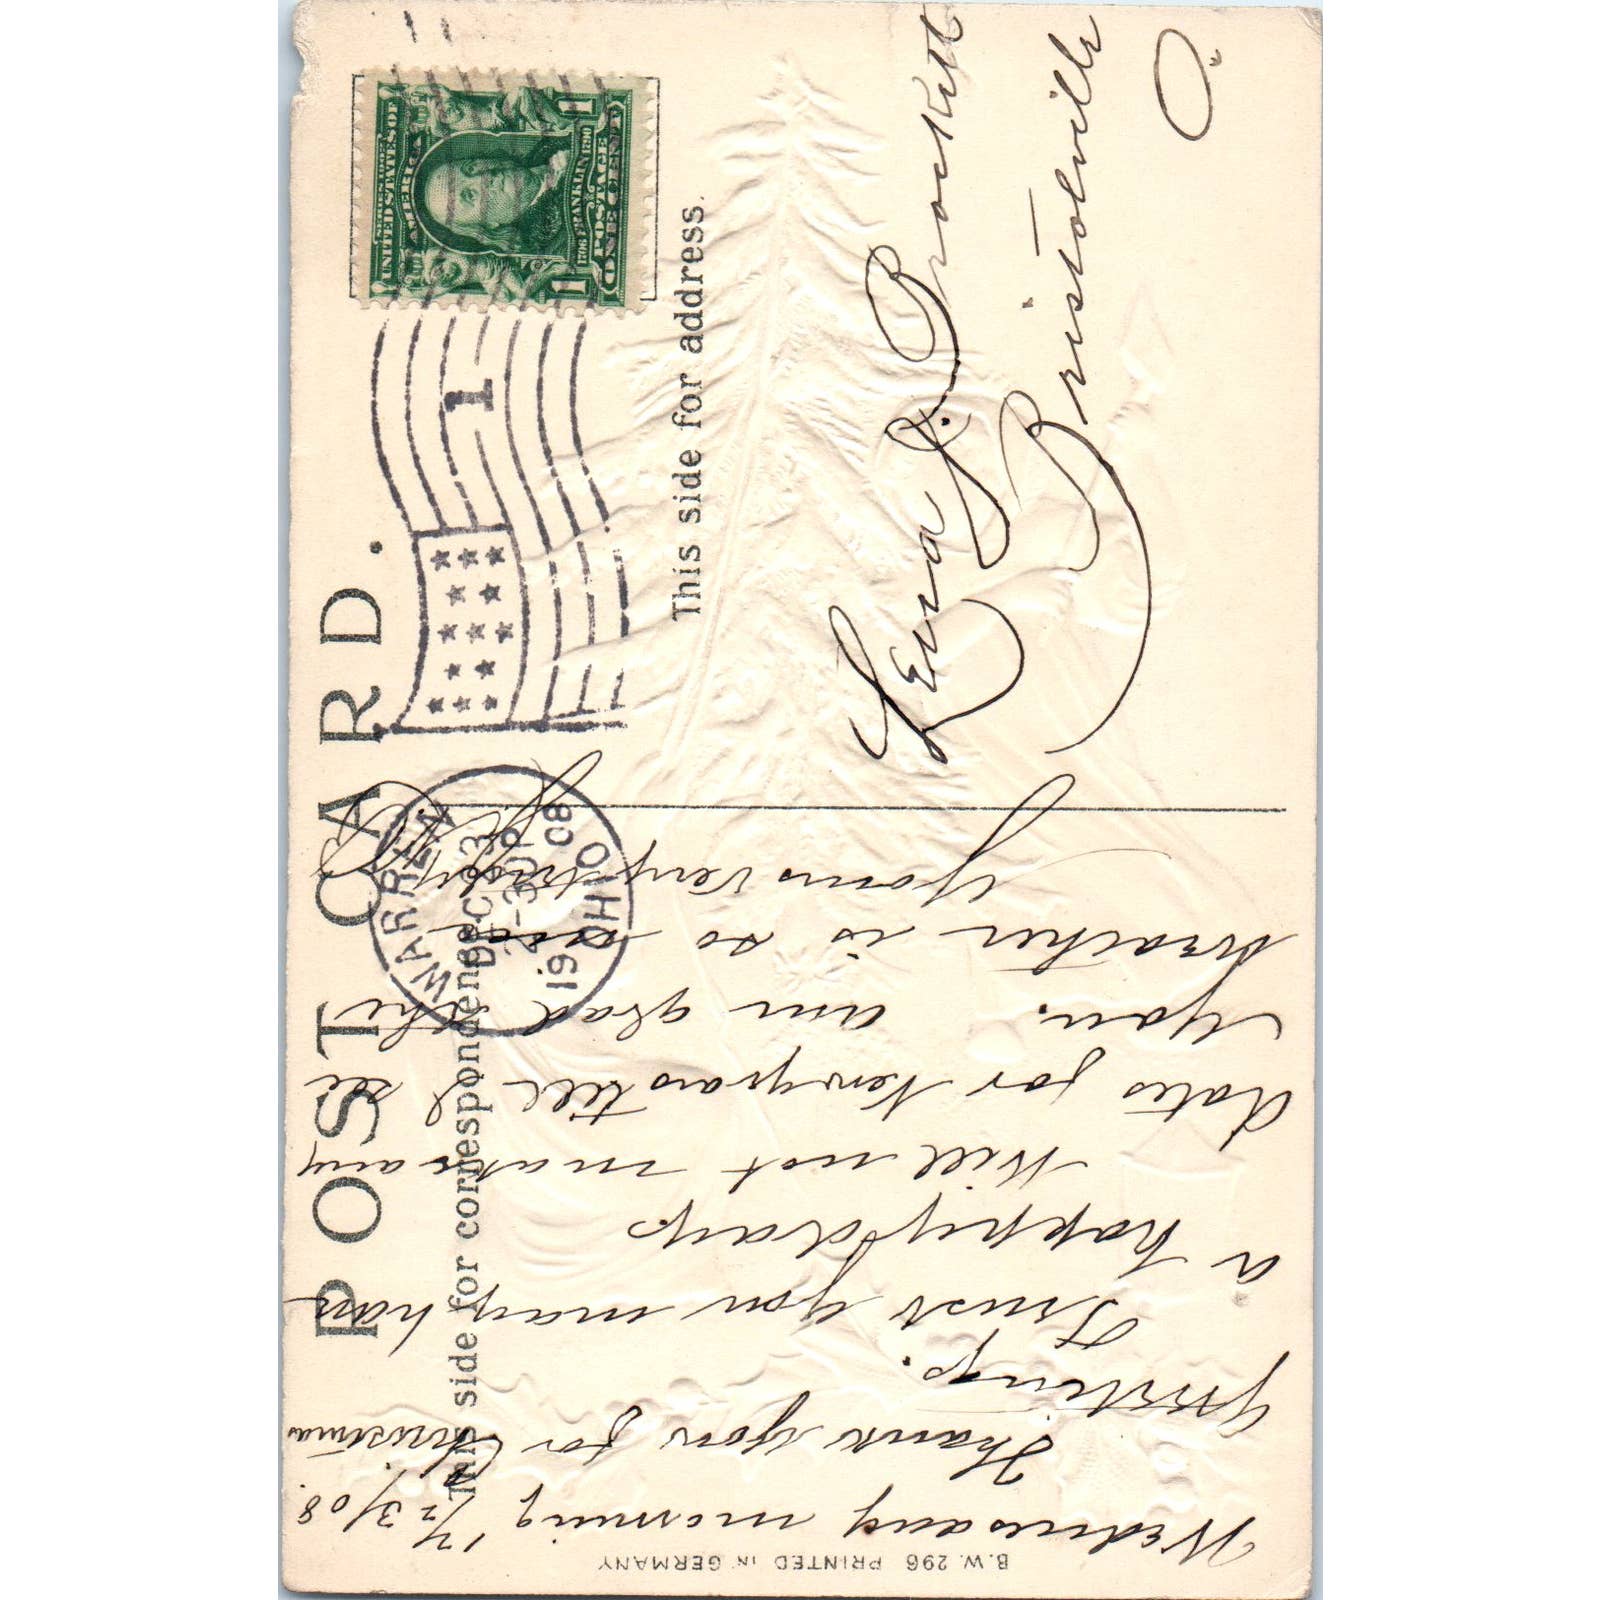 POST CARD.
This side for correspondence
This side for address.
UNITED STATES OF
AMERICA
1706 FRANKLIN 1790
POSTAGE
ONE CENT
1 1
1
WARREN
DEC 23
2-30P
19 08
OHIO
Lena J. Brockett
Bristolville
O.
B.W. 296 PRINTED IN GERMANY
Wednesday morning 12/23/08.
Thank you for Christmas
greetings.
Trust you may have
a happy day.
Will not make any
dates for Newyears till I see
you. am glad the
weather is so
Yours very truly